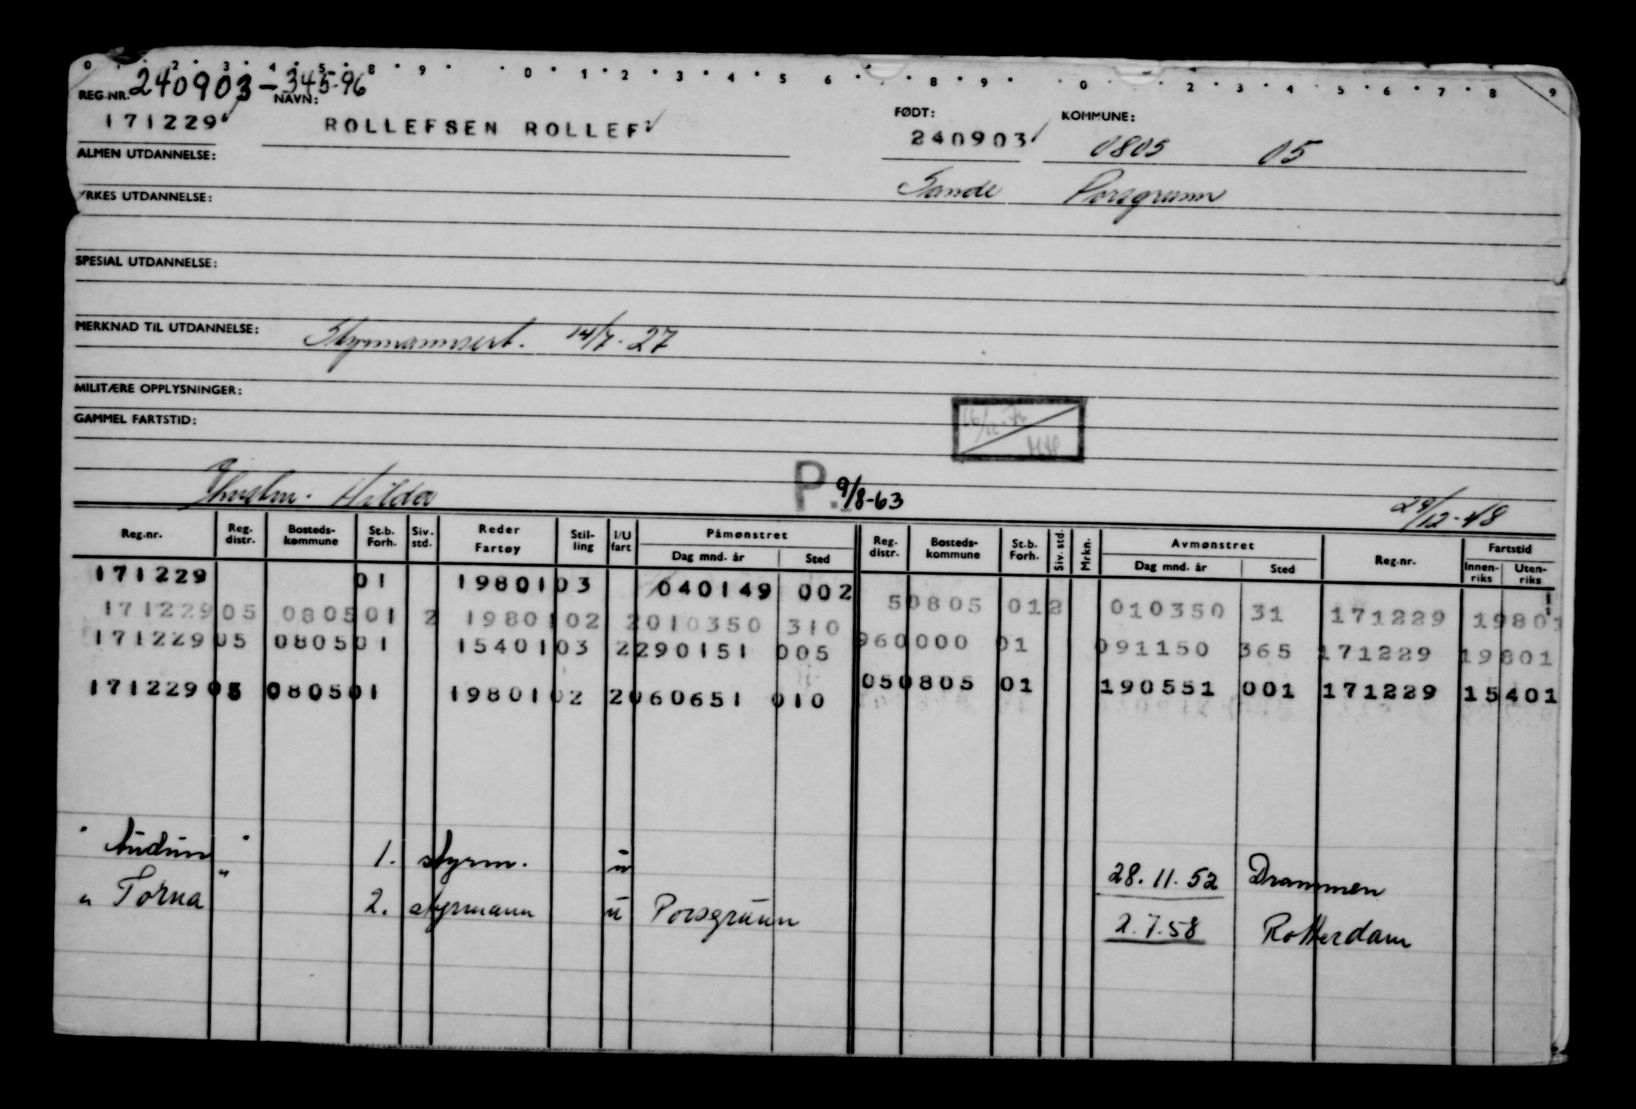 0 2 3 4 5 8 9 0 1 2 3 4 5 6 8 9 0 2 3 4 5 6 7 8 9
240903-345-96
REG.NR. NAVN: FØDT: KOMMUNE:
171229 ROLLEFSEN ROLLEF 240903 0805 05
ALMEN UTDANNELSE:
Sande Porsgrunn
YRKES UTDANNELSE:
SPESIAL UTDANNELSE:
MERKNAD TIL UTDANNELSE: Styrmannsert. 14/7-27
MILITÆRE OPPLYSNINGER:
GAMMEL FARTSTID:
Hilda P. 9/8-63 29/12-48
Reg.nr. Reg. distr. Bosteds- kommune St.b. Forh. Siv. std. Reder Fartøy Stil- ling I/U fart Påmønstret Dag mnd. år Sted Reg. distr. Bosteds- kommune St.b. Forh. Siv. std. Mrkn. Avmønstret Dag mnd. år Sted Reg.nr. Fartstid Innen- riks Uten- riks
171229 01 19801 03 040149 002
171229 05 0805 01 2 19801 02 2 010350 310 5 0805 01 2 010350 31 171229 19801
171229 05 0805 01 15401 03 2 290151 005 96 0000 01 091150 365 171229 19801
171229 05 0805 01 19801 02 2 060651 010 05 0805 01 190551 001 171229 15401
" Audun " 1. styrm. u 28.11.52 Drammen
" Torna " 2. styrmann u Porsgrunn 2.7.58 Rotterdam